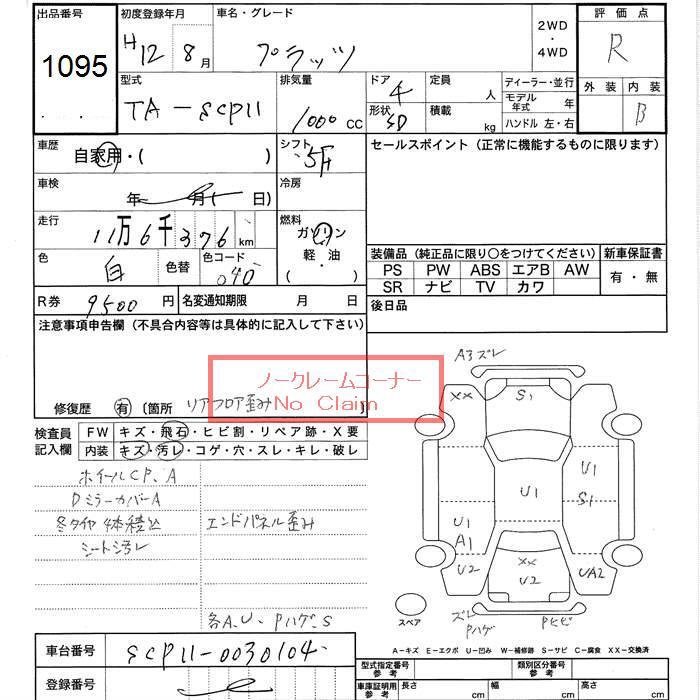 出品番号 初度登録年月 車名・グレード 2WD ・ 4WD 評価点
1095 H12 8月 プラッツ R
型式 排気量 ドア 定員 ディーラー・並行 外装 内装
TA-SCP11 1000 cc 4 人 モデル年式 年 B
形状 積載 ハンドル 左・右
SD kg
車歴 自家用・( ) シフト 5F セールスポイント（正常に機能するものに限ります）
車検 年 月( 日) 冷房
走行 11万6千376km 燃料 ガソリン 軽・油 ( )
色 白 色替 色コード 040
装備品（純正品に限り○をつけてください） 新車保証書
PS PW ABS エアB AW 有・無
SR ナビ TV カワ
R券 9500円 名変通知期限 月 日 後日品
注意事項申告欄（不具合内容等は具体的に記入して下さい）
ノークレームコーナー
No Claim
修復歴 有 〔箇所 リアフロア歪み 〕
検査員記入欄 FW キズ・飛石・ヒビ割・リペア跡・X要
内装 キズ・汚レ・コゲ・穴・スレ・キレ・破レ
ホイールCP、A
DミラーカバーA
冬タイヤ4本積込 エンドパネル歪み
シート汚レ
各A、U、Pハゲ、S
A3ズレ
XX S1
U1
U1 S1
U1 A1
U2 XX U2 UA2
スペア ズレ Pハゲ Pヒビ
A－キズ E－エクボ U－凹み W－補修跡 S－サビ C－腐食 XX－交換済
車台番号 SCP11-0030104
登録番号
型式指定番号 類別区分番号
車庫証明用参考 長さ cm 幅 cm 高さ cm